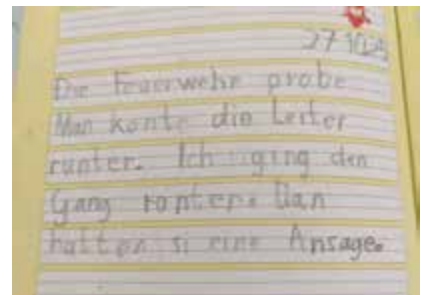 27.10.25
Die Feuerwehr probe
Man konte die Leiter
runter. Ich ging den
Gang runter. Dan
hatten si eine Ansage.